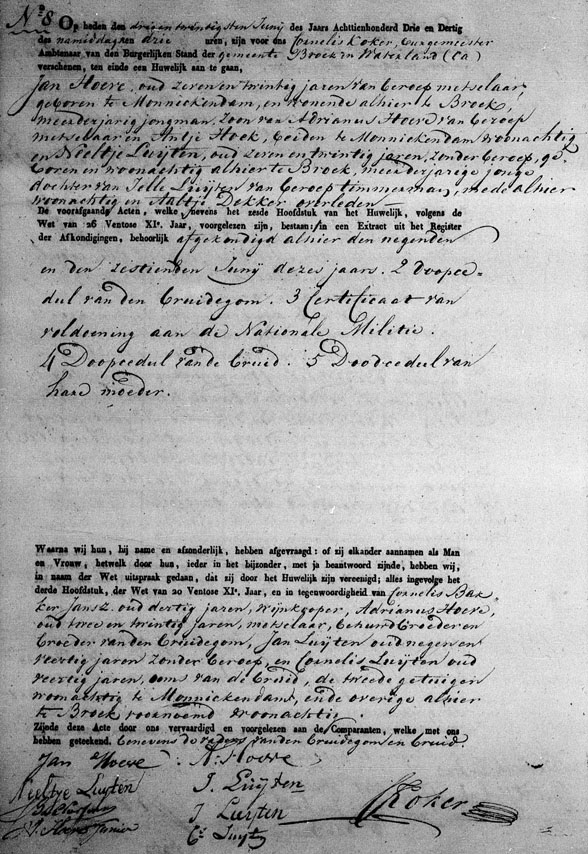 N.º 8 Op heden den drie en twintigsten Junij des Jaars Achttienhonderd Drie en Dertig
des namiddagten drie uren, zijn voor ons Cornelis Koker, Burgemeester
Ambtenaar van den Burgerlijken Stand der gemeente Broek in Waterland (Ca)
verschenen, ten einde een Huwelijk aan te gaan,
Jan Hoeve, oud zeven en twintig jaren van beroep metselaar,
geboren te Monnickendam, en wonende alhier te Broek,
meerderjarig jongman, zoon van Adrianus Hoeve van beroep
metselaar en Antje Hoek, beiden te Monnickendam woonachtig
en Neeltje Luijten, oud zeven en twintig jaren, zonder beroep, ge
boren en woonachtig alhier te Broek, meerderjarige jonge
dochter van Jelle Luijten van beroep timmerman, mede alhier
woonachtig en Aaltje Dekker overleden —
De voorafgaande Acten, welke, nevens het zesde Hoofdstuk van het Huwelijk, volgens de
Wet van 26 Ventose XIe. Jaar, voorgelezen zijn, bestaan: in een Extract uit het Register
der Afkondigingen, behoorlijk afgekondigd alhier den negenden
en den zestienden Junij dezes jaars. 2 Doopce-
dul van den Bruidegom. 3 Certificaat van
voldoening aan de Nationale Militie.
4 Doopcedul van de Bruid. 5 Doodcedul van
hare moeder.
Waarna wij hun, bij name en afzonderlijk, hebben afgevraagd: of zij elkander aannamen als Man
en Vrouw, hetwelk door hun, ieder in het bijzonder, met ja beantwoord zijnde, hebben wij,
in naam der Wet uitspraak gedaan, dat zij door het Huwelijk zijn vereenigd; alles ingevolge het
derde Hoofdstuk, der Wet van 20 Ventose XIe. Jaar, en in tegenwoordigheid van Cornelis Bak-
ker Jansz. oud dertig jaren, wijnkooper, Adrianus Hoeve,
oud twee en twintig jaren, metselaar, behuwd broeder en
broeder van den Bruidegom, Jan Luijten oud negen en
veertig jaren zonder beroep, en Cornelis Luijten oud
veertig jaren, ooms van de Bruid, de tweede getuigen
woonachtig te Monnickendam, en de overige alhier
te Broek voornoemd woonachtig.
Zijnde deze Acte door ons vervaardigd en voorgelezen aan de Comparanten, welke met ons
hebben geteekend. benevens de vaders van den Bruidegom en Bruid.
Jan Hoeve A: Hoeve
Neeltje Luijten J. Luijten
J Luijten CKoker
Cs Luijt